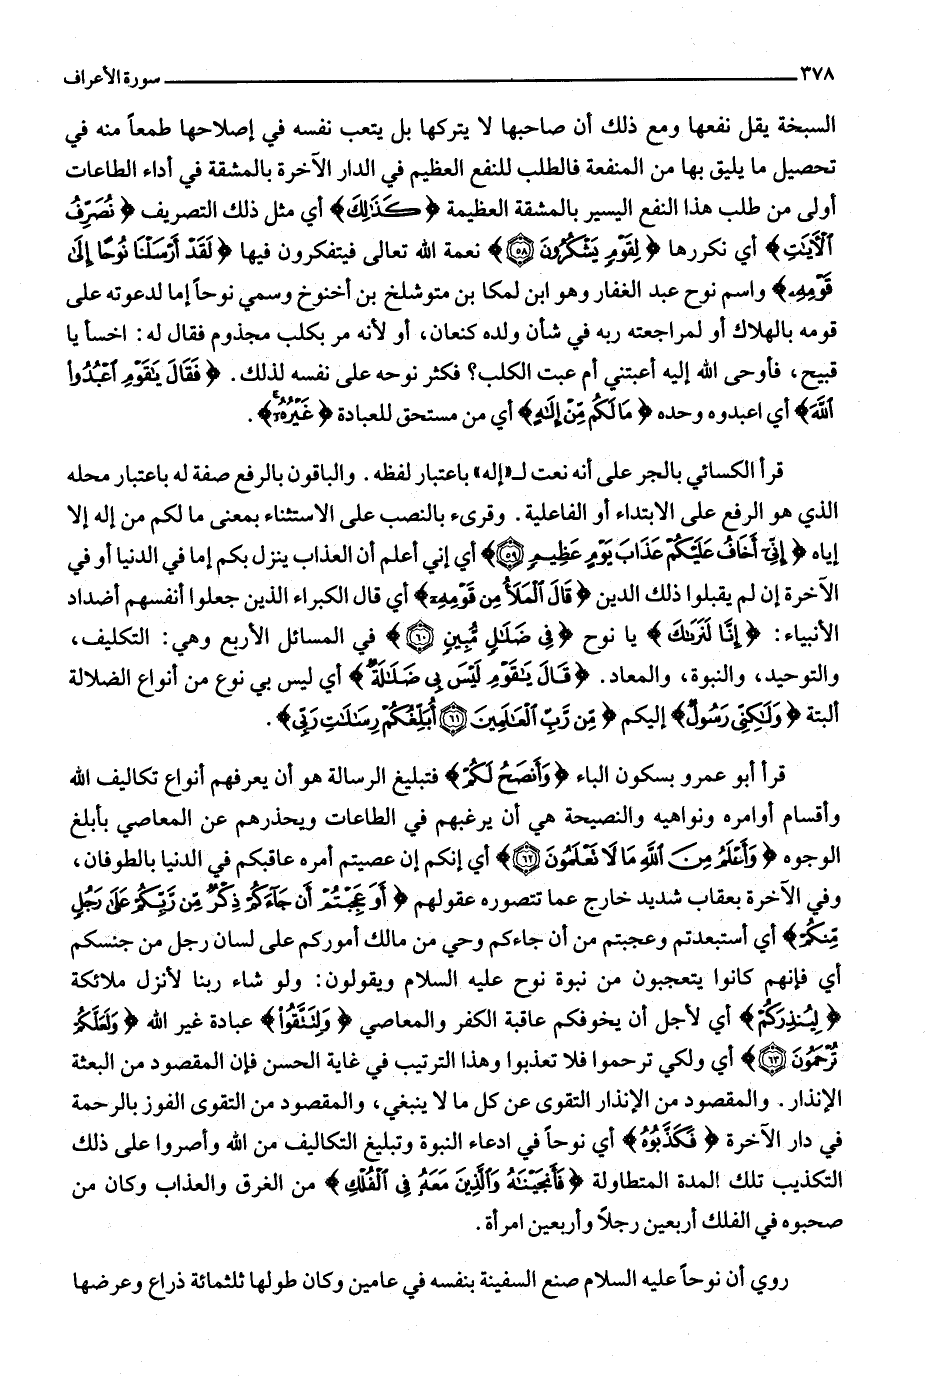 ٣٧٨ سورة الأعراف
السبخة يقل نفعها ومع ذلك أن صاحبها لا يتركها بل يتعب نفسه في إصلاحها طمعاً منه في
تحصيل ما يليق بها من المنفعة فالطلب للنفع العظيم في الدار الآخرة بالمشقة في أداء الطاعات
أولى من طلب هذا النفع اليسير بالمشقة العظيمة ﴿ كَذَٰلِكَ﴾ أي مثل ذلك التصريف ﴿ نُصَرِّفُ
ٱلْأَيَٰتِ﴾ أي نكررها ﴿ لِقَوْمٍ يَشْكُرُونَ ٥٨﴾ نعمة الله تعالى فيتفكرون فيها ﴿ لَقَدْ أَرْسَلْنَا نُوحًا إِلَىٰ
قَوْمِهِۦ﴾ واسم نوح عبد الغفار وهو ابن لمكا بن متوشلخ بن أخنوخ وسمي نوحاً إما لدعوته على
قومه بالهلاك أو لمراجعته ربه في شأن ولده كنعان، أو لأنه مر بكلب مجذوم فقال له: اخسأ يا
قبيح، فأوحى الله إليه أعبتني أم عبت الكلب؟ فكثر نوحه على نفسه لذلك. ﴿ فَقَالَ يَٰقَوْمِ ٱعْبُدُواْ
ٱللَّهَ﴾ أي اعبدوه وحده ﴿ مَا لَكُم مِّنْ إِلَٰهٍ﴾ أي من مستحق للعبادة ﴿ غَيْرُهُۥٓ﴾.
قرأ الكسائي بالجر على أنه نعت لـ«إله» باعتبار لفظه. والباقون بالرفع صفة له باعتبار محله
الذي هو الرفع على الابتداء أو الفاعلية. وقرىء بالنصب على الاستثناء بمعنى ما لكم من إله إلا
إياه ﴿ إِنِّىٓ أَخَافُ عَلَيْكُمْ عَذَابَ يَوْمٍ عَظِيمٍ ٥٩﴾ أي إني أعلم أن العذاب ينزل بكم إما في الدنيا أو في
الآخرة إن لم يقبلوا ذلك الدين ﴿ قَالَ ٱلْمَلَأُ مِن قَوْمِهِۦٓ﴾ أي قال الكبراء الذين جعلوا أنفسهم أضداد
الأنبياء: ﴿ إِنَّا لَنَرَىٰكَ﴾ يا نوح ﴿ فِى ضَلَٰلٍ مُّبِينٍ ٦٠﴾ في المسائل الأربع وهي: التكليف،
والتوحيد، والنبوة، والمعاد. ﴿ قَالَ يَٰقَوْمِ لَيْسَ بِى ضَلَٰلَةٌ﴾ أي ليس بي نوع من أنواع الضلالة
ألبتة ﴿ وَلَٰكِنِّى رَسُولٌ﴾ إليكم ﴿ مِّن رَّبِّ ٱلْعَٰلَمِينَ ٦١ أُبَلِّغُكُمْ رِسَٰلَٰتِ رَبِّى﴾.
قرأ أبو عمرو بسكون الباء ﴿ وَأَنصَحُ لَكُمْ﴾ فتبليغ الرسالة هو أن يعرفهم أنواع تكاليف الله
وأقسام أوامره ونواهيه والنصيحة هي أن يرغبهم في الطاعات ويحذرهم عن المعاصي بأبلغ
الوجوه ﴿ وَأَعْلَمُ مِنَ ٱللَّهِ مَا لَا تَعْلَمُونَ ٦٢﴾ أي إنكم إن عصيتم أمره عاقبكم في الدنيا بالطوفان،
وفي الآخرة بعقاب شديد خارج عما تتصوره عقولهم ﴿ أَوَعَجِبْتُمْ أَن جَآءَكُمْ ذِكْرٌ مِّن رَّبِّكُمْ عَلَىٰ رَجُلٍ
مِّنكُمْ﴾ أي أستبعدتم وعجبتم من أن جاءكم وحي من مالك أموركم على لسان رجل من جنسكم
أي فإنهم كانوا يتعجبون من نبوة نوح عليه السلام ويقولون: ولو شاء ربنا لأنزل ملائكة
﴿ لِيُنذِرَكُمْ﴾ أي لأجل أن يخوفكم عاقبة الكفر والمعاصي ﴿ وَلِتَتَّقُواْ﴾ عبادة غير الله ﴿ وَلَعَلَّكُمْ
تُرْحَمُونَ ٦٣﴾ أي ولكي ترحموا فلا تعذبوا وهذا الترتيب في غاية الحسن فإن المقصود من البعثة
الإنذار. والمقصود من الإنذار التقوى عن كل ما لا ينبغي، والمقصود من التقوى الفوز بالرحمة
في دار الآخرة ﴿ فَكَذَّبُوهُ﴾ أي نوحاً في ادعاء النبوة وتبليغ التكاليف من الله وأصروا على ذلك
التكذيب تلك المدة المتطاولة ﴿ فَأَنجَيْنَٰهُ وَٱلَّذِينَ مَعَهُۥ فِى ٱلْفُلْكِ﴾ من الغرق والعذاب وكان من
صحبوه في الفلك أربعين رجلاً وأربعين امرأة.
روي أن نوحاً عليه السلام صنع السفينة بنفسه في عامين وكان طولها ثلثمائة ذراع وعرضها